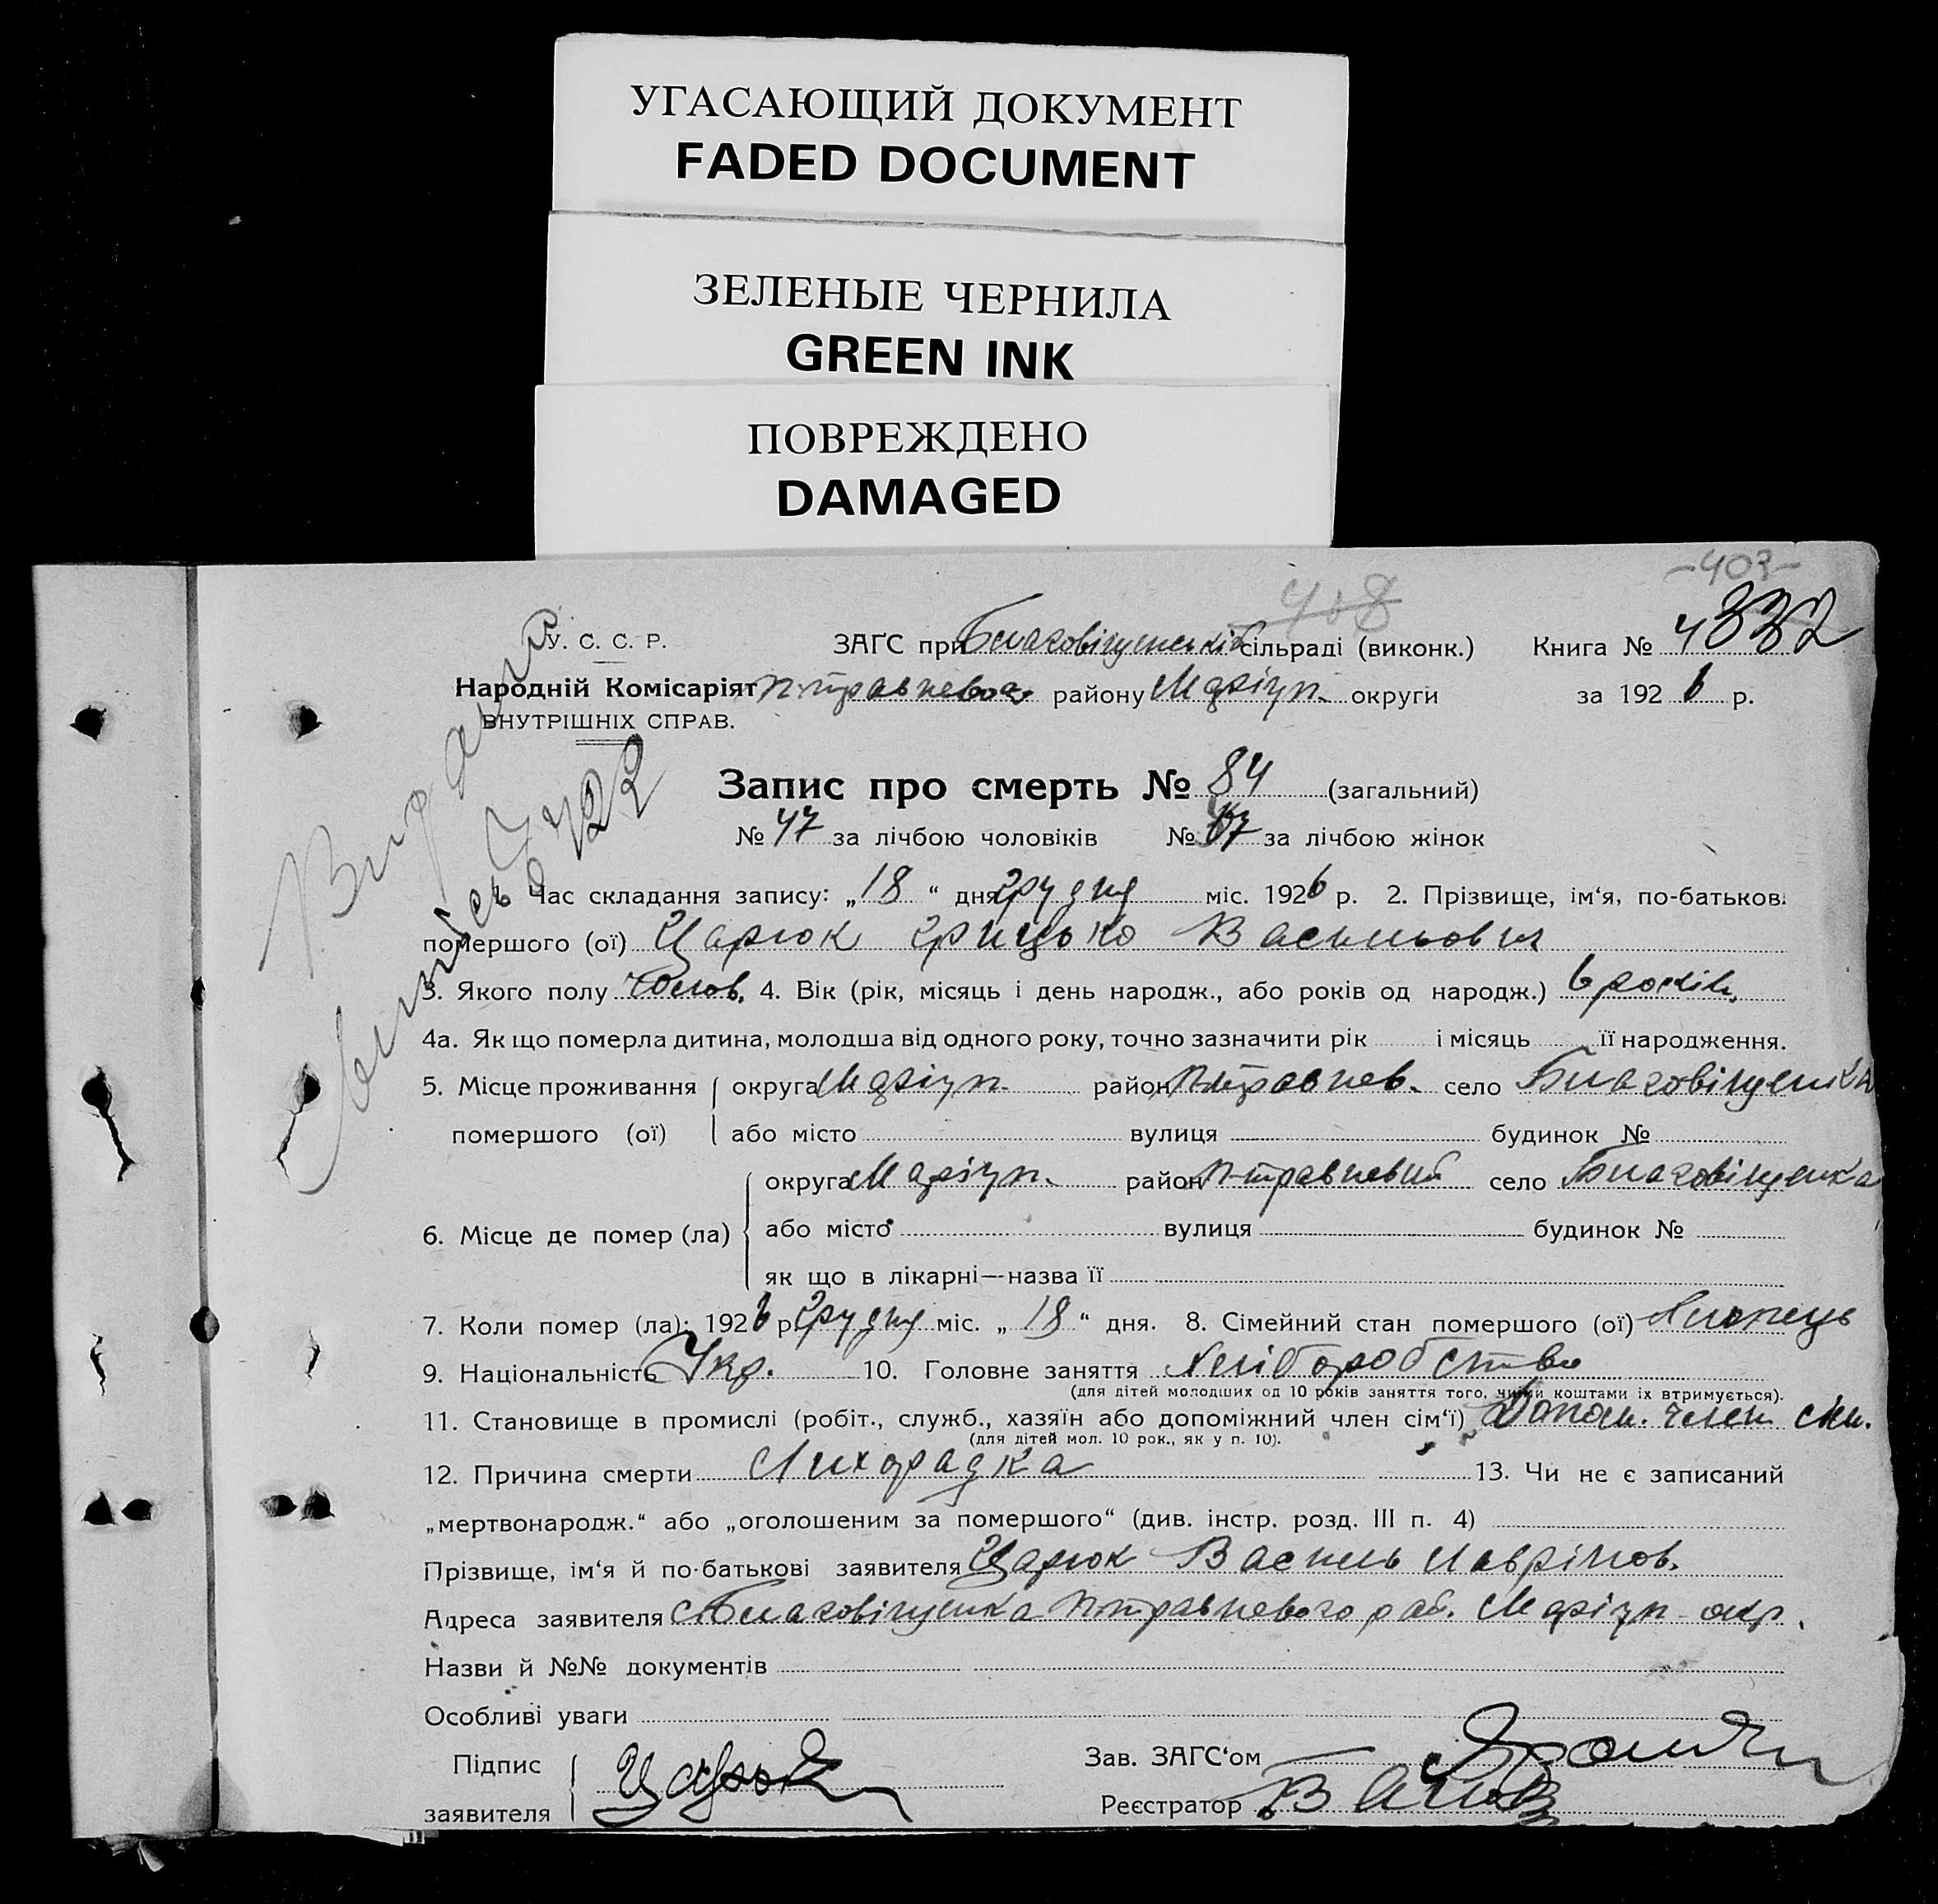 УГАСАЮЩИЙ ДОКУМЕНТ
FADED DOCUMENT
ЗЕЛЕНЫЕ ЧЕРНИЛА
GREEN INK
ПОВРЕЖДЕНО
DAMAGED
-403-
408
У. С. С. Р. ЗАГС при Благовіщенській сільраді (виконк.) Книга № 4332
Народній Комісаріят п-травневого району Маріуп. округи за 1926 р.
ВНУТРІШНІХ СПРАВ.
Запис про смерть № 84 (загальний)
№ 47 за лічбою чоловіків № 37 за лічбою жінок
Час складання запису: „18“ дня грудня міс. 1926 р. 2. Прізвище, ім‘я, по-батьков.
помершого (ої) Царюк Грицько Васильович
3. Якого полу чолов. 4. Вік (рік, місяць і день народж., або років од народж.) 6 років.
4а. Як що померла дитина, молодша від одного року, точно зазначити рік і місяць її народження.
5. Місце проживання округа Маріуп. район п-травнев. село Благовіщенка
помершого (ої) або місто вулиця будинок №
округа Маріуп. район п-травневий село Благовіщенка
6. Місце де помер (ла) або місто вулиця будинок №
як що в лікарні—назва її
7. Коли помер (ла): 1926 р. грудня міс. „18“ дня. 8. Сімейний стан помершого (ої) Хлопець
9. Національність Укр. 10. Головне заняття Хліборобство
(для дітей молодших од 10 років заняття того, чиїми коштами їх втримується).
11. Становище в промислі (робіт., служб., хазяїн або допоміжний член сім‘ї) Допом. член сім.
(для дітей мол. 10 рок., як у п. 10).
12. Причина смерти Лихорадка 13. Чи не є записаний
„мертвонародж.“ або „оголошеним за помершого“ (див. інстр. розд. III п. 4)
Прізвище, ім‘я й по-батькові заявителя Царюк Василь Лаврінов.
Адреса заявителя с. Благовіщенка п-травневого рай. Маріуп окр.
Назви й №№ документів
Особливі уваги
Підпис Зав. ЗАГС‘ом
заявителя Царюк Реєстратор